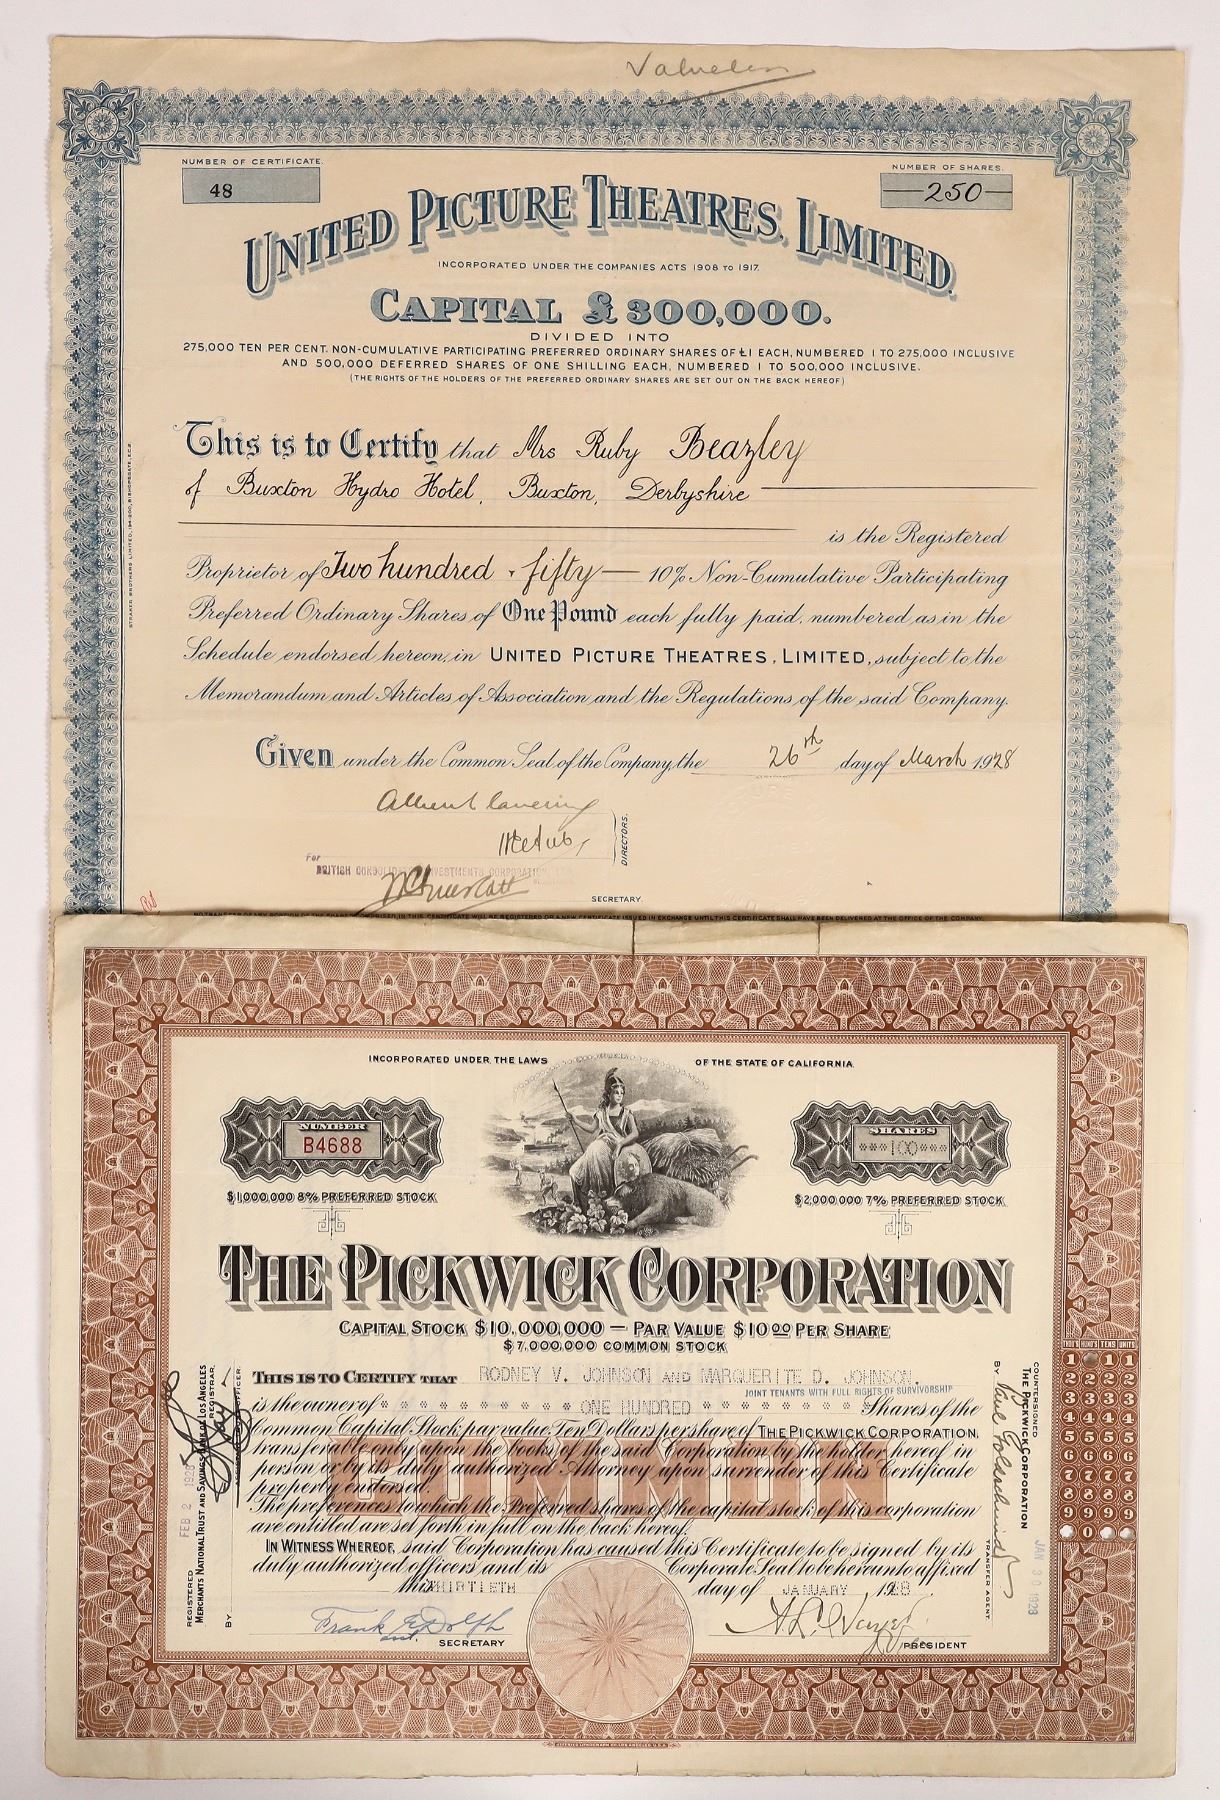 Valueless
NUMBER OF CERTIFICATE.
48
NUMBER OF SHARES.
250
UNITED PICTURE THEATRES, LIMITED.
INCORPORATED UNDER THE COMPANIES ACTS 1908 TO 1917.
CAPITAL £300,000.
DIVIDED INTO
275,000 TEN PER CENT. NON-CUMULATIVE PARTICIPATING PREFERRED ORDINARY SHARES OF £1 EACH, NUMBERED 1 TO 275,000 INCLUSIVE
AND 500,000 DEFERRED SHARES OF ONE SHILLING EACH, NUMBERED 1 TO 500,000 INCLUSIVE.
(THE RIGHTS OF THE HOLDERS OF THE PREFERRED ORDINARY SHARES ARE SET OUT ON THE BACK HEREOF)
This is to Certify that Mrs Ruby Beazley
of Buxton Hydro Hotel, Buxton, Derbyshire
is the Registered
Proprietor of Two hundred & fifty — 10% Non-Cumulative Participating
Preferred Ordinary Shares of One Pound each fully paid, numbered as in the
Schedule endorsed hereon, in UNITED PICTURE THEATRES, LIMITED, subject to the
Memorandum and Articles of Association and the Regulations of the said Company.
Given under the Common Seal of the Company, the 26th day of March 1928
DIRECTORS.
For
BRITISH CONSOLIDATED INVESTMENTS CORPORATION
SECRETARY.
NO TRANSFER OF ANY PORTION OF THE SHARES COMPRISED IN THIS CERTIFICATE WILL BE REGISTERED OR A NEW CERTIFICATE ISSUED IN EXCHANGE UNTIL THIS CERTIFICATE SHALL HAVE BEEN DELIVERED AT THE OFFICE OF THE COMPANY.
INCORPORATED UNDER THE LAWS OF THE STATE OF CALIFORNIA
NUMBER
B4688
SHARES
***100***
$1,000,000 8% PREFERRED STOCK
$2,000,000 7% PREFERRED STOCK
THE PICKWICK CORPORATION
CAPITAL STOCK $10,000,000 — PAR VALUE $10.00 PER SHARE
$7,000,000 COMMON STOCK
THIS IS TO CERTIFY THAT RODNEY V. JOHNSON AND MARGUERITE D. JOHNSON,
JOINT TENANTS WITH FULL RIGHTS OF SURVIVORSHIP
is the owner of ONE HUNDRED Shares of the
Common Capital Stock, par value Ten Dollars per share of THE PICKWICK CORPORATION,
transferable only upon the books of the said Corporation by the holder hereof in
person or by its duly authorized Attorney upon surrender of this Certificate
properly endorsed.
COMMON
The preferences to which the Preferred shares of the capital stock of this corporation
are entitled are set forth in full on the back hereof.
IN WITNESS WHEREOF, said Corporation has caused this Certificate to be signed by its
duly authorized officers and its Corporate Seal to be hereunto affixed
this THIRTIETH day of JANUARY, 1928
Frank E. Dolph
asst. SECRETARY
PRESIDENT
REGISTERED FEB 2 1928
MERCHANTS NATIONAL TRUST AND SAVINGS BANK OF LOS ANGELES
REGISTRAR.
BY
OFFICER.
COUNTERSIGNED
THE PICKWICK CORPORATION
JAN 30 1928
BY Paul Goldschmidt
TRANSFER AGENT.
THOU'S HUND'S TENS UNITS
1 1 1
2 2 2 2
3 3 3 3
4 4 4 4
5 5 5 5
6 6 6 6
7 7 7 7
8 8 8 8
9 9 9 9
0